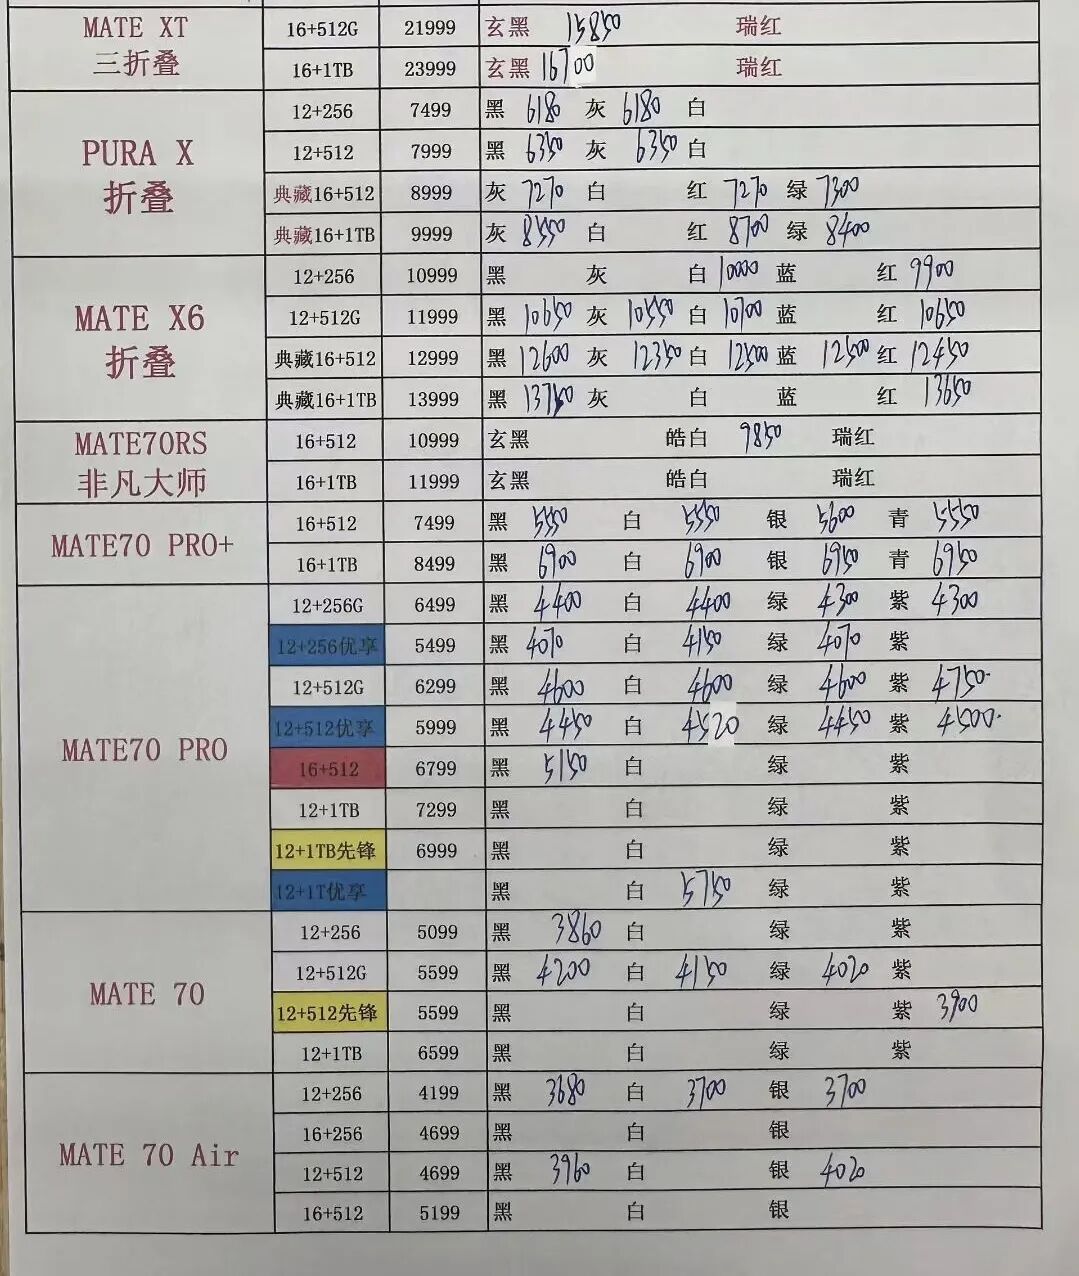 MATE XT 三折叠
16+512G 21999 玄黑 15850 瑞红
16+1TB 23999 玄黑 16700 瑞红
PURA X 折叠
12+256 7499 黑 6180 灰 6180 白
12+512 7999 黑 6350 灰 6350 白
典藏16+512 8999 灰 7270 白 红 7270 绿 7300
典藏16+1TB 9999 灰 8550 白 红 8700 绿 8400
MATE X6 折叠
12+256 10999 黑 灰 白 10000 蓝 红 9900
12+512G 11999 黑 10650 灰 10550 白 10700 蓝 红 10650
典藏16+512 12999 黑 12600 灰 12350 白 12500 蓝 12500 红 12450
典藏16+1TB 13999 黑 13750 灰 白 蓝 红 13650
MATE70RS 非凡大师
16+512 10999 玄黑 皓白 9850 瑞红
16+1TB 11999 玄黑 皓白 瑞红
MATE70 PRO+
16+512 7499 黑 5550 白 5550 银 5600 青 5550
16+1TB 8499 黑 6900 白 6900 银 6950 青 6950
MATE70 PRO
12+256G 6499 黑 4400 白 4400 绿 4300 紫 4300
12+256优享 5499 黑 4070 白 4150 绿 4070 紫
12+512G 6299 黑 4600 白 4600 绿 4600 紫 4750
12+512优享 5999 黑 4450 白 4520 绿 4450 紫 4500
16+512 6799 黑 5150 白 绿 紫
12+1TB 7299 黑 白 绿 紫
12+1TB先锋 6999 黑 白 绿 紫
12+1T优享 黑 白 5750 绿 紫
MATE 70
12+256 5099 黑 3860 白 绿 紫
12+512G 5599 黑 4200 白 4150 绿 4020 紫
12+512先锋 5599 黑 白 绿 紫 3900
12+1TB 6599 黑 白 绿 紫
MATE 70 Air
12+256 4199 黑 3680 白 3700 银 3700
16+256 4699 黑 白 银
12+512 4699 黑 3960 白 银 4020
16+512 5199 黑 白 银